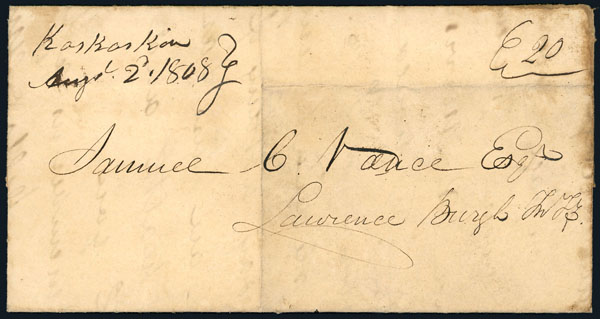 Kaskaskia
Augt. 2d. 1808
20
Samuel C. Vance Esqr
Lawrence Burgh In Ty.